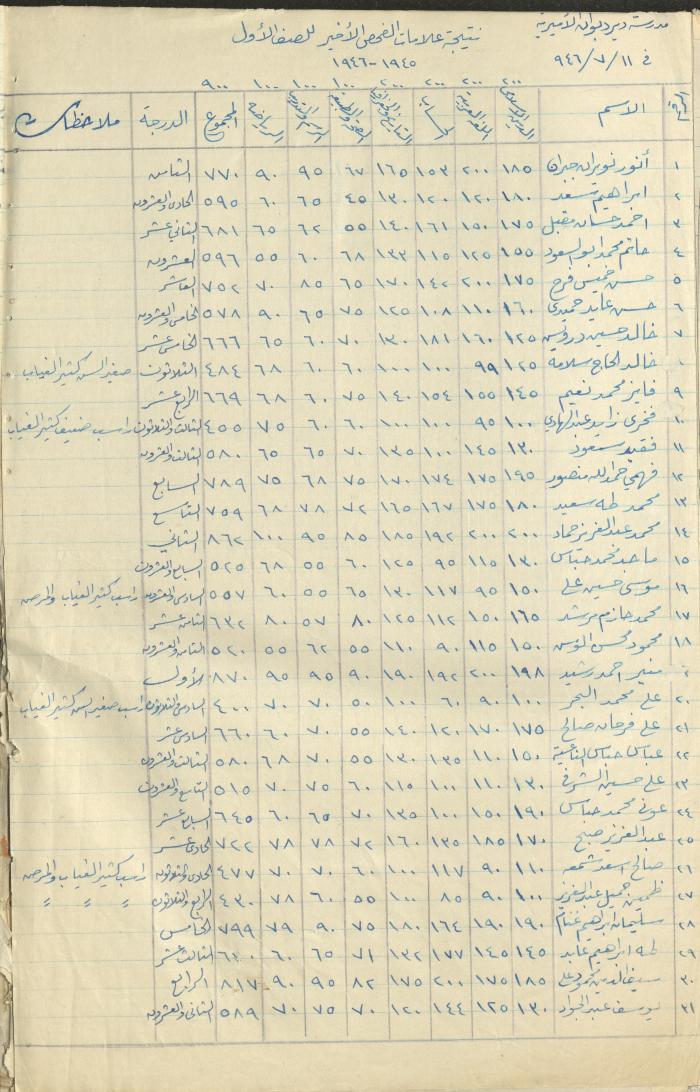 مدرسة ديرديوان الأميرية
نتيجة علامات الفحص الأخير للصف الأول
في ١١/٧/٩٤٦
١٩٤٥-١٩٤٦
٢٠٠ ٢٠٠ ٢٠٠ ٢٠٠ ١٠٠ ١٠٠ ١٠٠ ٩٠٠
الاسم اللغة العربية الحساب المجموع الدرجة ملاحظات
١ أنور نويران جبران ١٨٥ ٢٠٠ ١٥٣ ١٦٥ ٦٧ ٩٥ ٩٠ ٧٧٠ الثامن
٢ ابراهيم سعد ١٨٠ ١٢٠ ١٢٠ ١٣٠ ٤٥ ٦٥ ٦٠ ٥٩٥ الحادي والعشرون
٣ احمد حسان مقبل ١٧٥ ١٥٠ ١٦١ ١٤٠ ٥٥ ٦٢ ٦٥ ٦٨١ الثاني عشر
٤ حاتم محمد ابو السعود ١٥٥ ١٢٥ ١١٥ ١٣٣ ٦٨ ٦٠ ٥٥ ٥٩٦ العشرون
٥ حسن خميس فرح ١٧٥ ٢٠٠ ١٤٢ ١٧٠ ٦٥ ٨٥ ٧٠ ٧٥٢ العاشر
٦ حسن عايد حميدي ١٦٠ ١١٠ ١٠٨ ١٢٥ ٧٥ ٦٥ ٩٠ ٥٧٨ الخامس والعشرون
٧ خالد حسين درويش ١٢٥ ١٦٠ ١٨١ ١٣٠ ٧٠ ٦٠ ٦٥ ٦٦٦ الخامس عشر
خالد الحاج سلامه ١٢٥ ٩٩ ١٠٠ ١٠٠ ٦٠ ٦٠ ٦٨ ٤٨٤ الثلاثون صغير السن كثير الغياب
٩ فايز محمد نعيم ١٤٥ ١٥٥ ١٥٤ ١٤٠ ٧٥ ٦٠ ٦٨ ٦٦٩ الرابع عشر
١٠ فخري زايد عبد الهادي ١٠٠ ٩٥ ١٠٠ ١٠٠ ٦٠ ٦٠ ٧٥ ٤٥٥ الثالث والثلاثون راسب ضعيف كثير الغياب
١١ فقيد سعود ١٣٠ ١٤٥ ١٠٠ ١٣٥ ٧٠ ٦٥ ٦٥ ٥٨٠ الثالث والعشرون
١٢ فهمي حمدالله منصور ١٩٥ ١٧٥ ١٧٤ ١٧٠ ٧٥ ٦٨ ٧٥ ٧٨٩ السابع
١٣ محمد طه سعيد ١٨٠ ١٧٥ ١٦٧ ١٦٥ ٧٢ ٧٨ ٦٨ ٧٥٩ التاسع
١٤ محمد عبد العزيز حماد ٢٠٠ ٢٠٠ ١٩٢ ١٨٥ ٨٥ ٩٥ ١٠٠ ٨٦٢ الثاني
١٥ ماجد محمد عباس ١٣٠ ١١٥ ٩٥ ١٢٥ ٦٠ ٥٥ ٦٨ ٥٢٥ السابع والعشرون
١٦ موسى حسين علي ١٥٠ ٩٥ ١١٧ ١٣٠ ٦٥ ٥٥ ٦٠ ٥٥٧ السادس والعشرون راسب كثير الغياب والمرض
١٧ محمد حازم مرشد ١٦٥ ١٥٠ ١١٢ ١٢٥ ٨٠ ٥٧ ٨٠ ٦٣٢ الثامن عشر
١٨ محمود محسن ١٥٠ ١١٥ ٩٠ ١١٠ ٥٥ ٦٢ ٥٥ ٥٢٠ الثامن والعشرون
منير احمد رشيد ١٩٨ ٢٠٠ ١٩٢ ١٩٠ ٩٠ ٩٥ ٩٥ ٨٧٠ الأول
٢٠ علي محمد البحر ١٠٠ ٩٠ ٦٠ ١٠٠ ٥٠ ٧٠ ٧٠ ٤٠٠ السادس والثلاثون راسب صغير السن كثير الغياب
٢١ علي فرحان صالح ١٧٥ ١٧٠ ١٢٠ ١٤٠ ٥٥ ٧٠ ٦٠ ٦٦٠ السادس عشر
٢٢ عباس عباس ١٥٠ ١١٠ ١٣٥ ١٣٠ ٥٥ ٧٠ ٦٨ ٥٨٠ الثالث والعشرون
٢٣ علي حسين الشرفي ١٣٠ ١١٠ ١٠٠ ١١٥ ٦٠ ٧٥ ٧٠ ٥١٥ التاسع والعشرون
٢٤ عوني محمد عباس ١٩٠ ١٥٠ ١٠٠ ١٣٥ ٧٠ ٦٥ ٦٠ ٦٤٥ السابع عشر
٢٥ عبد العزيز صبح ١٧٠ ١٨٥ ١٣٥ ١٦٠ ٧٢ ٧٨ ٧٨ ٧٢٢ الحادي عشر
٢٦ صالح اسعد شمعه ١١٠ ٩٠ ١١٧ ١٠٠ ٦٠ ٧٠ ٧٠ ٤٧٧ الحادي والثلاثون راسب كثير الغياب والمرض
٢٧ جميل عبد العزيز ١٠٠ ٩٠ ٨٥ ١٠٠ ٥٥ ٦٠ ٧٨ ٤٣٠ الرابع والثلاثون 〃 〃 〃
٢٨ سليمان ابراهيم غنام ١٩٠ ١٩٠ ١٦٤ ١٨٠ ٧٥ ٩٠ ٧٩ ٧٩٩ الخامس
٢٩ طه ابراهيم عابد ١٤٥ ١٤٥ ١٧٧ ١٣٢ ٧١ ٦٥ ٦٠ الثالث عشر
٣٠ سيف الدين محمود علي ١٨٥ ١٧٥ ٢٠٠ ١٧٥ ٨٢ ٩٥ ٩٠ ٨١٧ الرابع
٣١ يوسف عبد الجواد ١٣٠ ١٢٥ ١٤٤ ١٢٠ ٧٠ ٧٥ ٧٠ ٥٨٩ الثاني والعشرون